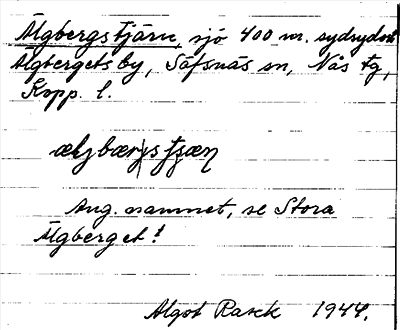 Älgbergstjärn, sjö 400 m. sydsydost
Älgbergets by, Säfsnäs sn, Nås tg,
Kopp. l.
Ang. namnet, se Stora
Älgberget!
Algot Rasck 1944.